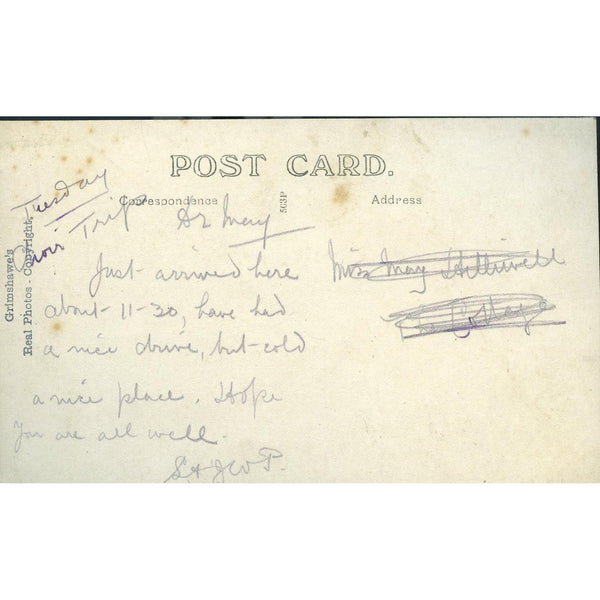 POST CARD.
Correspondence
563P
Address
Grimshawe's
Real Photos - Copyright.
Tuesday
Choir Trip
Dr May
Just arrived here
about 11-30, have had
a nice drive, but cold
a nice place. Hope
You are all well.
S & J W P.
Miss May Helliwell